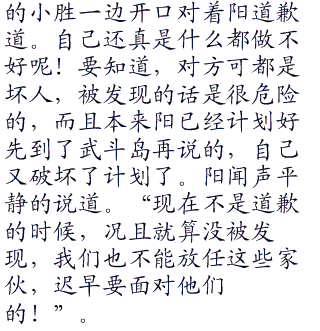 的小胜一边开口对着阳道歉
道。自己还真是什么都做不
好呢！要知道，对方可都是
坏人，被发现的话是很危险
的，而且本来阳已经计划好
先到了武斗岛再说的，自己
又破坏了计划了。阳闻声平
静的说道。“现在不是道歉
的时候，况且就算没被发
现，我们也不能放任这些家
伙，迟早要面对他们
的！”。